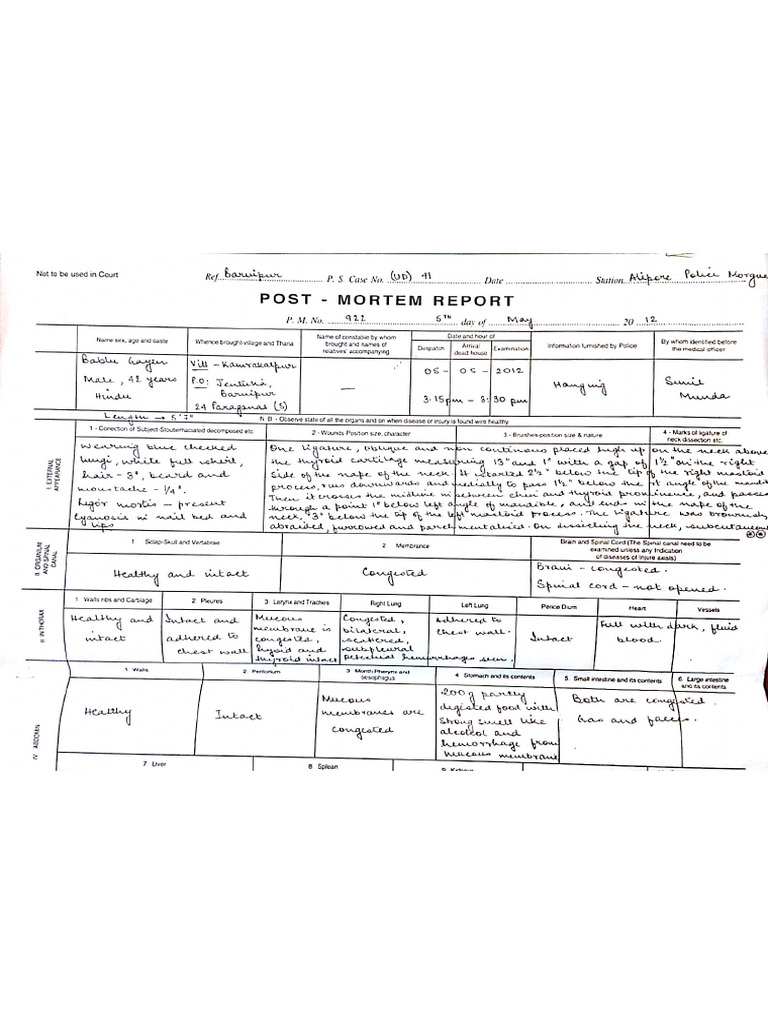 Not to be used in Court
Ref. Baruipur P. S. Case No. (UD) 41 Date Station Alipore Police Morgue
POST - MORTEM REPORT
P. M. No. 922 5th day of May 20 12
Name sex, age and caste
Whence brought-village and Thana
Name of constable by whom
brought and names of
relatives' accompanying
Date and hour of
Despatch
Arrival
dead house
Examination
Information furnished by Police
By whom identified before
the medical officer
Bablu Gayen
Male, 42 years
Hindu
Vill - Kamrakatpur
P.O:
Baruipur
24 Paraganas (S)
—
05 - 05 - 2012
3.15pm - 3:30 pm
Hanging
Sunil
Munda
Length → 5'7"
N.B - Observe state of all the organs and on when disease or injury is found wire healthy
I. EXTERNAL
APPEARANCE
1 - Conection of Subject-Stoutemaciated decomposed etc.
2 - Wounds Position size, character
3 - Bruishes-position size & nature
4 - Marks of ligature of
neck dissection etc.
Wearing blue checked
lungi, white full shirt,
hair - 3", beard and
moustache - 1/4".
Rigor mortis - present
Cyanosis in nail bed and
lips
One ligature, oblique and non continuous placed high up on the neck above
the thyroid cartilage measuring 13" and 1" with a gap of 1½" on the right
side of the nape of the neck. It started 2½" below the tip of the right mastoid
process, runs downwards and medially to pass 1½" below the rt angle of the mandi
Then it crosses the midline in between chin and thyroid prominence, and passes
through a point 1" below left angle of mandible, and ends in the nape of the
neck, "3" below the tip of the left mastoid process. The ligature was brownish,
abraided, furrowed and parchmentalised. On dissecting the neck, subcutaneous
II. ORGANUM
AND SPINAL
CANAL
1 Scalap-Skull and Vertabrae
2 Membrance
Brain and Spinal Cord (The Spinal canal need to be
examined unless any Indication
of diseases of Injure axists)
Healthy and intact
Congested
Brain - congested.
Spinal cord - not opened.
II INTHOTAX
1 Walls ribs and Cartilage
2 Pleures
3 Larynx and Traches
Right Lung
Left Lung
Perice Dium
Heart
Vessels
Healthy and
intact
Intact and
adhered to
chest wall
Mucous
membrane is
congested,
hyoid and
thyroid intact
Congested,
bilateral,
scattered,
subpleural
petechial hemorrhages seen.
Adhered to
chest wall.
Intact
Full with dark, fluid
blood.
IV ABDOMIN
1. Walls
2. Peritorium
3 Month Pheryns and
oesophagus
4 Stomach and its contents
5. Small intestine and its contents
6. Large intestine
and its contents
Healthy
Intact
Mucous
membranes are
congested
200g partly
digested food with
strong smell like
alcohol and
hemorrhage from
mucous membrane
Both are congested.
Gas and faeces.
7 Liver
8 Splean
9 Kidneys